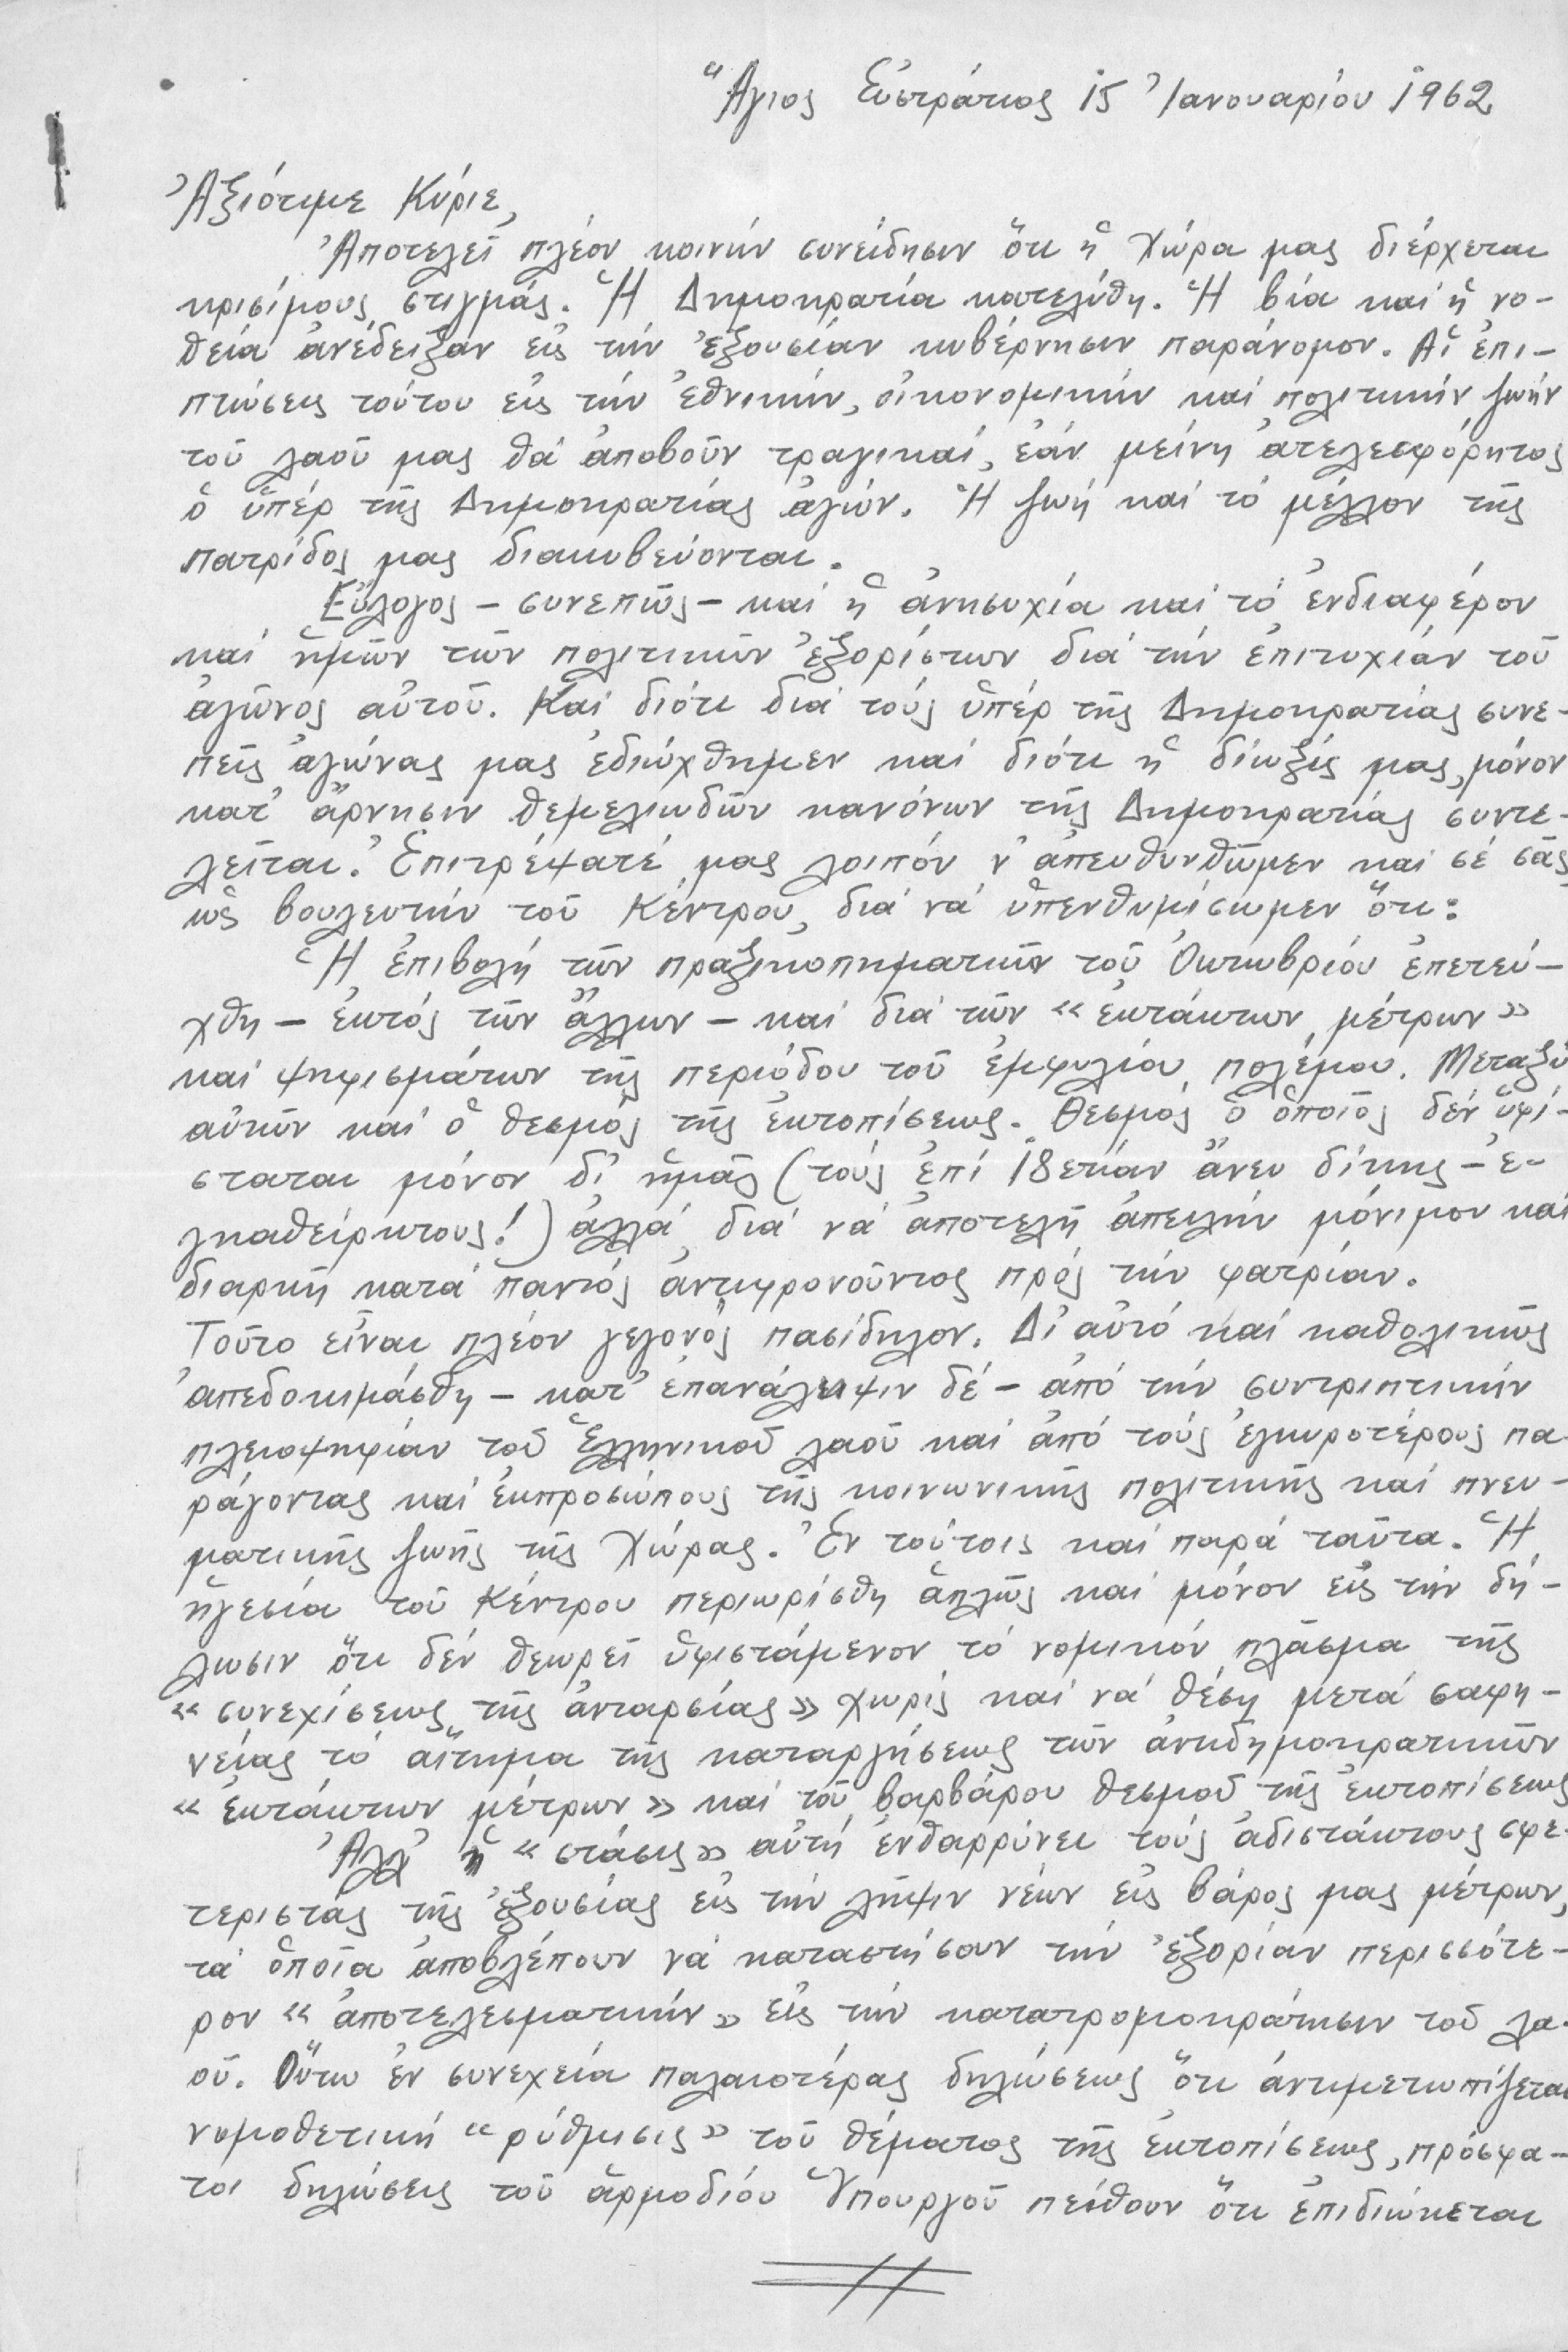 Ἅγιος Εὐστράτιος 15 Ἰανουαρίου 1962
Ἀξιότιμε Κύριε,
Ἀποτελεῖ πλέον κοινήν συνείδησιν ὅτι ἡ Χώρα μας διέρχεται
κρισίμους στιγμάς. Ἡ Δημοκρατία κατελύθη. Ἡ βία καί ἡ νο-
θεία ἀνέδειξαν εἰς τήν ἐξουσίαν κυβέρνησιν παράνομον. Αἱ ἐπι-
πτώσεις τούτου εἰς τήν ἐθνικήν, οἰκονομικήν καί πολιτικήν ζωήν
τοῦ λαοῦ μας θά ἀποβοῦν τραγικαί, ἐάν μείνη ἀτελεσφόρητος
ὁ ὑπέρ τῆς Δημοκρατίας ἀγών. Ἡ ζωή καί τό μέλλον τῆς
πατρίδος μας διακυβεύονται.
Εὔλογος – συνεπῶς – καί ἡ ἀνησυχία καί τό ἐνδιαφέρον
καί ἡμῶν τῶν πολιτικῶν ἐξορίστων διά τήν ἐπιτυχίαν τοῦ
ἀγῶνος αὐτοῦ. Καί διότι διά τούς ὑπέρ τῆς Δημοκρατίας συνε-
πεῖς ἀγώνας μας ἐδιώχθημεν καί διότι ἡ δίωξίς μας, μόνον
κατ' ἄρνησιν θεμελιωδῶν κανόνων τῆς Δημοκρατίας συντε-
λεῖται. Ἐπιτρέψατέ μας λοιπόν ν' ἀπευθυνθῶμεν καί σέ σᾶς
ὡς βουλευτήν τοῦ Κέντρου, διά νά ὑπενθυμίσωμεν ὅτι:
Ἡ ἐπιβολή τῶν πραξικοπηματιῶν τοῦ Ὀκτωβρίου ἐπετεύ-
χθη – ἐκτός τῶν ἄλλων – καί διά τῶν «ἐκτάκτων μέτρων»
καί ψηφισμάτων τῆς περιόδου τοῦ ἐμφυλίου πολέμου. Μεταξύ
αὐτῶν καί ὁ θεσμός τῆς ἐκτοπίσεως. Θεσμός ὁ ὁποῖος δέν ὑφί-
σταται μόνον δι' ἡμᾶς (τούς ἐπί 18ετίαν ἄνευ δίκης – ἐ-
γκαθείρκτους!) ἀλλά διά νά ἀποτελῆ ἀπειλήν μόνιμον καί
διαρκῆ κατά παντός ἀντιφρονοῦντος πρός τήν φατρίαν.
Τοῦτο εἶναι πλέον γεγονός πασίδηλον. Δι' αὐτό καί καθολικῶς
ἀπεδοκιμάσθη – κατ' ἐπανάληψιν δέ – ἀπό τήν συντριπτικήν
πλειοψηφίαν τοῦ Ἑλληνικοῦ λαοῦ καί ἀπό τούς ἐγκυροτέρους πα-
ράγοντας καί ἐκπροσώπους τῆς κοινωνικῆς πολιτικῆς καί πνευ-
ματικῆς ζωῆς τῆς Χώρας. Ἐν τούτοις καί παρά ταῦτα. Ἡ
ἡγεσία τοῦ Κέντρου περιωρίσθη ἁπλῶς καί μόνον εἰς τήν δή-
λωσιν ὅτι δέν θεωρεῖ ὑφιστάμενον τό νομικόν πλάσμα τῆς
«συνεχίσεως τῆς ἀνταρσίας» χωρίς καί νά θέση μετά σαφη-
νείας τό αἴτημα τῆς καταργήσεως τῶν ἀντιδημοκρατικῶν
«ἐκτάκτων μέτρων» καί τοῦ βαρβάρου θεσμοῦ τῆς ἐκτοπίσεως
Ἀλλ' ἡ «στάσις» αὐτή ἐνθαρρύνει τούς ἀδιστάκτους σφε-
τεριστάς τῆς ἐξουσίας εἰς τήν λῆψιν νέων εἰς βάρος μας μέτρων,
τά ὁποῖα ἀποβλέπουν νά καταστήσουν τήν ἐξορίαν περισσότε-
ρον «ἀποτελεσματικήν» εἰς τήν κατατρομοκράτησιν τοῦ λα-
οῦ. Οὕτω ἐν συνεχεία παλαιοτέρας δηλώσεως ὅτι ἀντιμετωπίζεται
νομοθετική «ρύθμισις» τοῦ θέματος τῆς ἐκτοπίσεως, πρόσφα-
τοι δηλώσεις τοῦ ἁρμοδίου Ὑπουργοῦ πείθουν ὅτι ἐπιδιώκεται